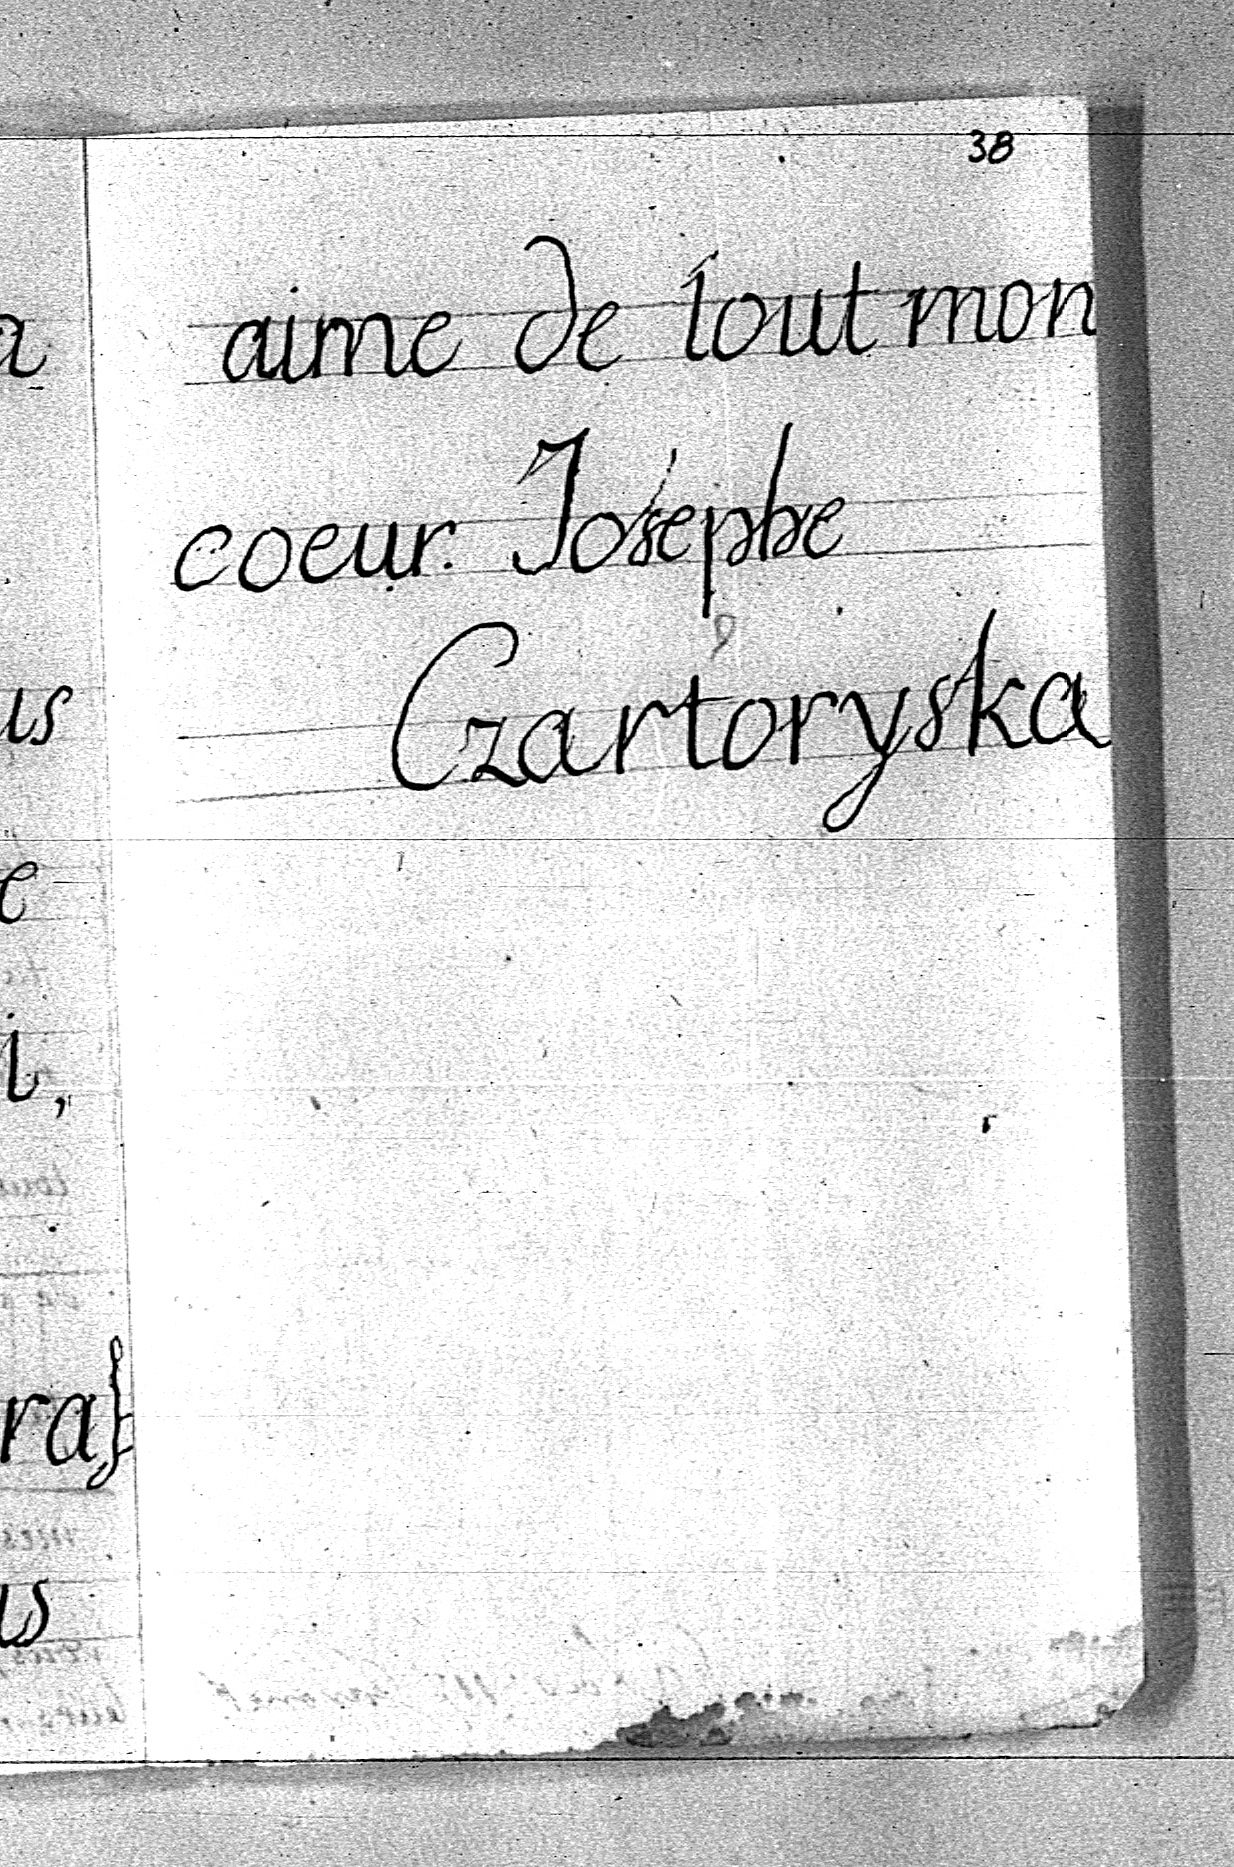 38
aime de tout mon
coeur. Josephe
Czartoryska
a
us
e
i,
ra}
us